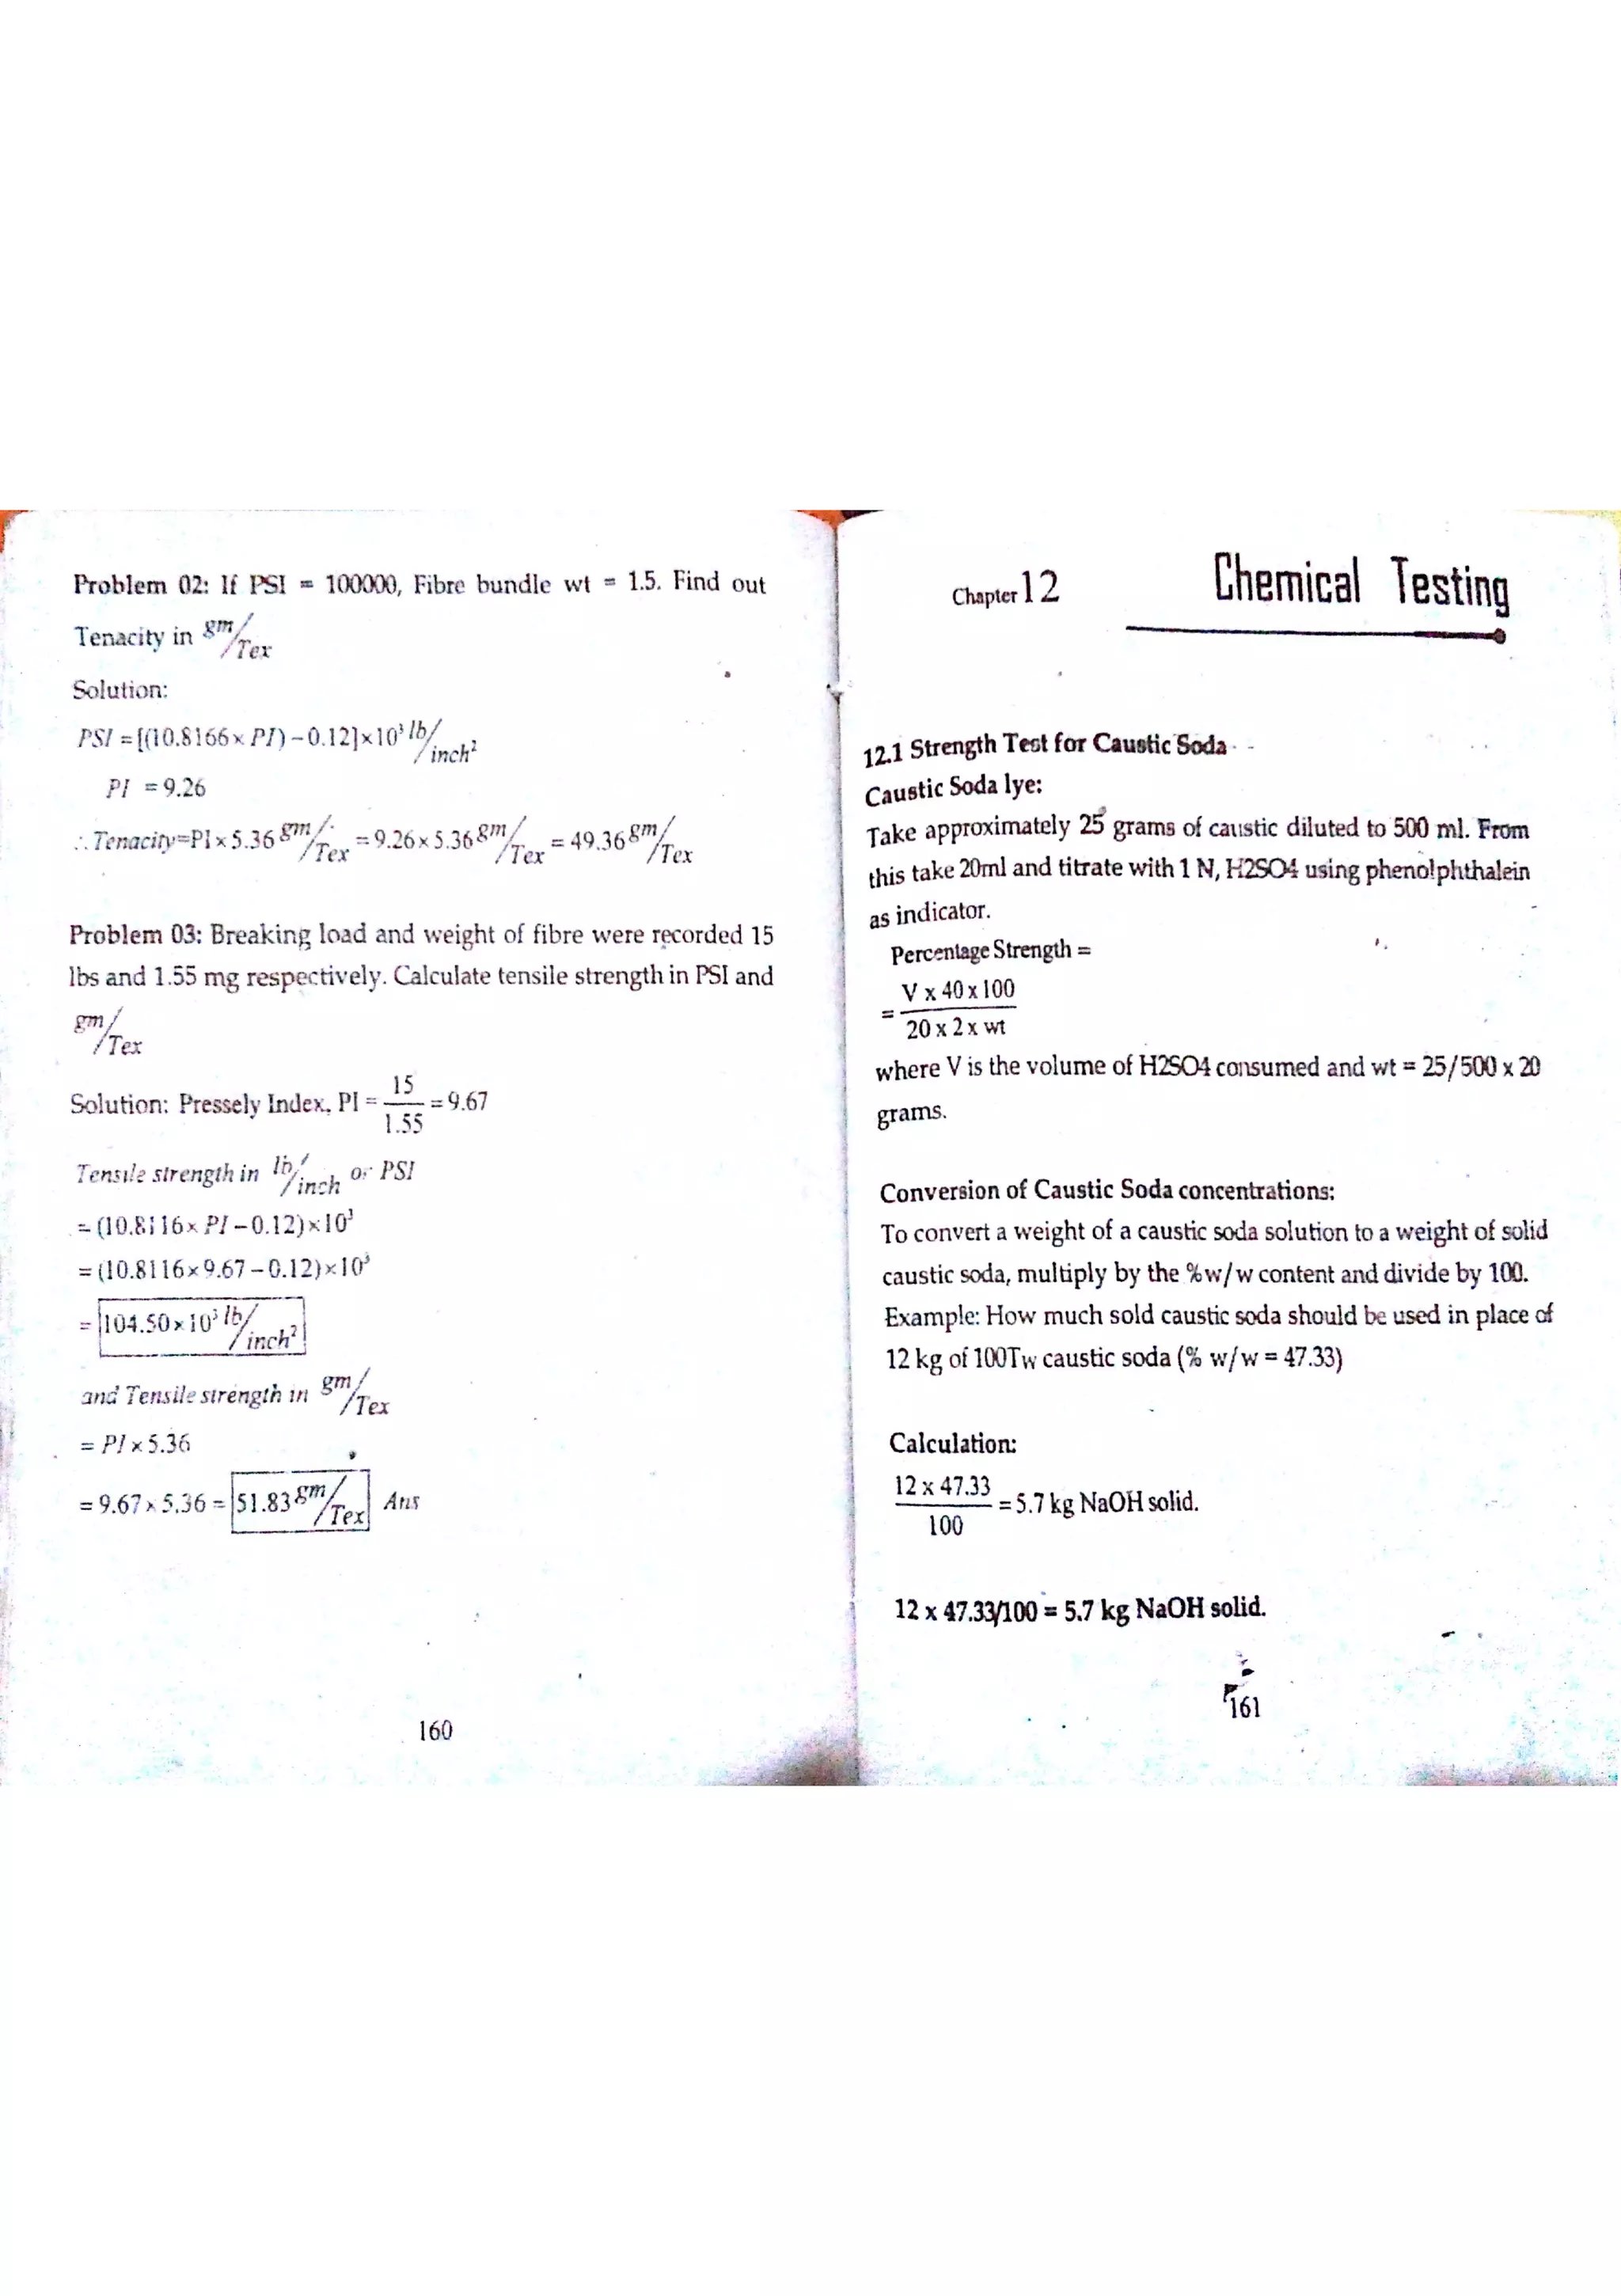 Problem 02: If PSI = 100000, Fibre bundle wt = 1.5. Find out
Tenacity in gm/Tex
Solution:
PSI = [(10.8166 × PI) − 0.12] × 10³ lb/inch²
PI = 9.26
∴ Tenacity=PI × 5.36 gm/Tex = 9.26 × 5.36 gm/Tex = 49.36 gm/Tex
Problem 03: Breaking load and weight of fibre were recorded 15
lbs and 1.55 mg respectively. Calculate tensile strength in PSI and
gm/Tex
Solution: Pressely Index, PI = 15/1.55 = 9.67
Tensile strength in lb/inch or PSI
= (10.8116 × PI − 0.12) × 10³
= (10.8116 × 9.67 − 0.12) × 10³
= 104.50 × 10³ lb/inch²
and Tensile strength in gm/Tex
= PI × 5.36
= 9.67 × 5.36 = 51.83 gm/Tex Ans
160
Chapter 12 Chemical Testing
12.1 Strength Test for Caustic Soda
Caustic Soda lye:
Take approximately 25 grams of caustic diluted to 500 ml. From
this take 20ml and titrate with 1 N, H2SO4 using phenolphthalein
as indicator.
Percentage Strength =
= V x 40 x 100 / 20 x 2 x wt
where V is the volume of H2SO4 consumed and wt = 25/500 x 20
grams.
Conversion of Caustic Soda concentrations:
To convert a weight of a caustic soda solution to a weight of solid
caustic soda, multiply by the %w/w content and divide by 100.
Example: How much sold caustic soda should be used in place of
12 kg of 100Tw caustic soda (% w/w = 47.33)
Calculation:
12 x 47.33 / 100 = 5.7 kg NaOH solid.
12 x 47.33/100 = 5.7 kg NaOH solid.
161